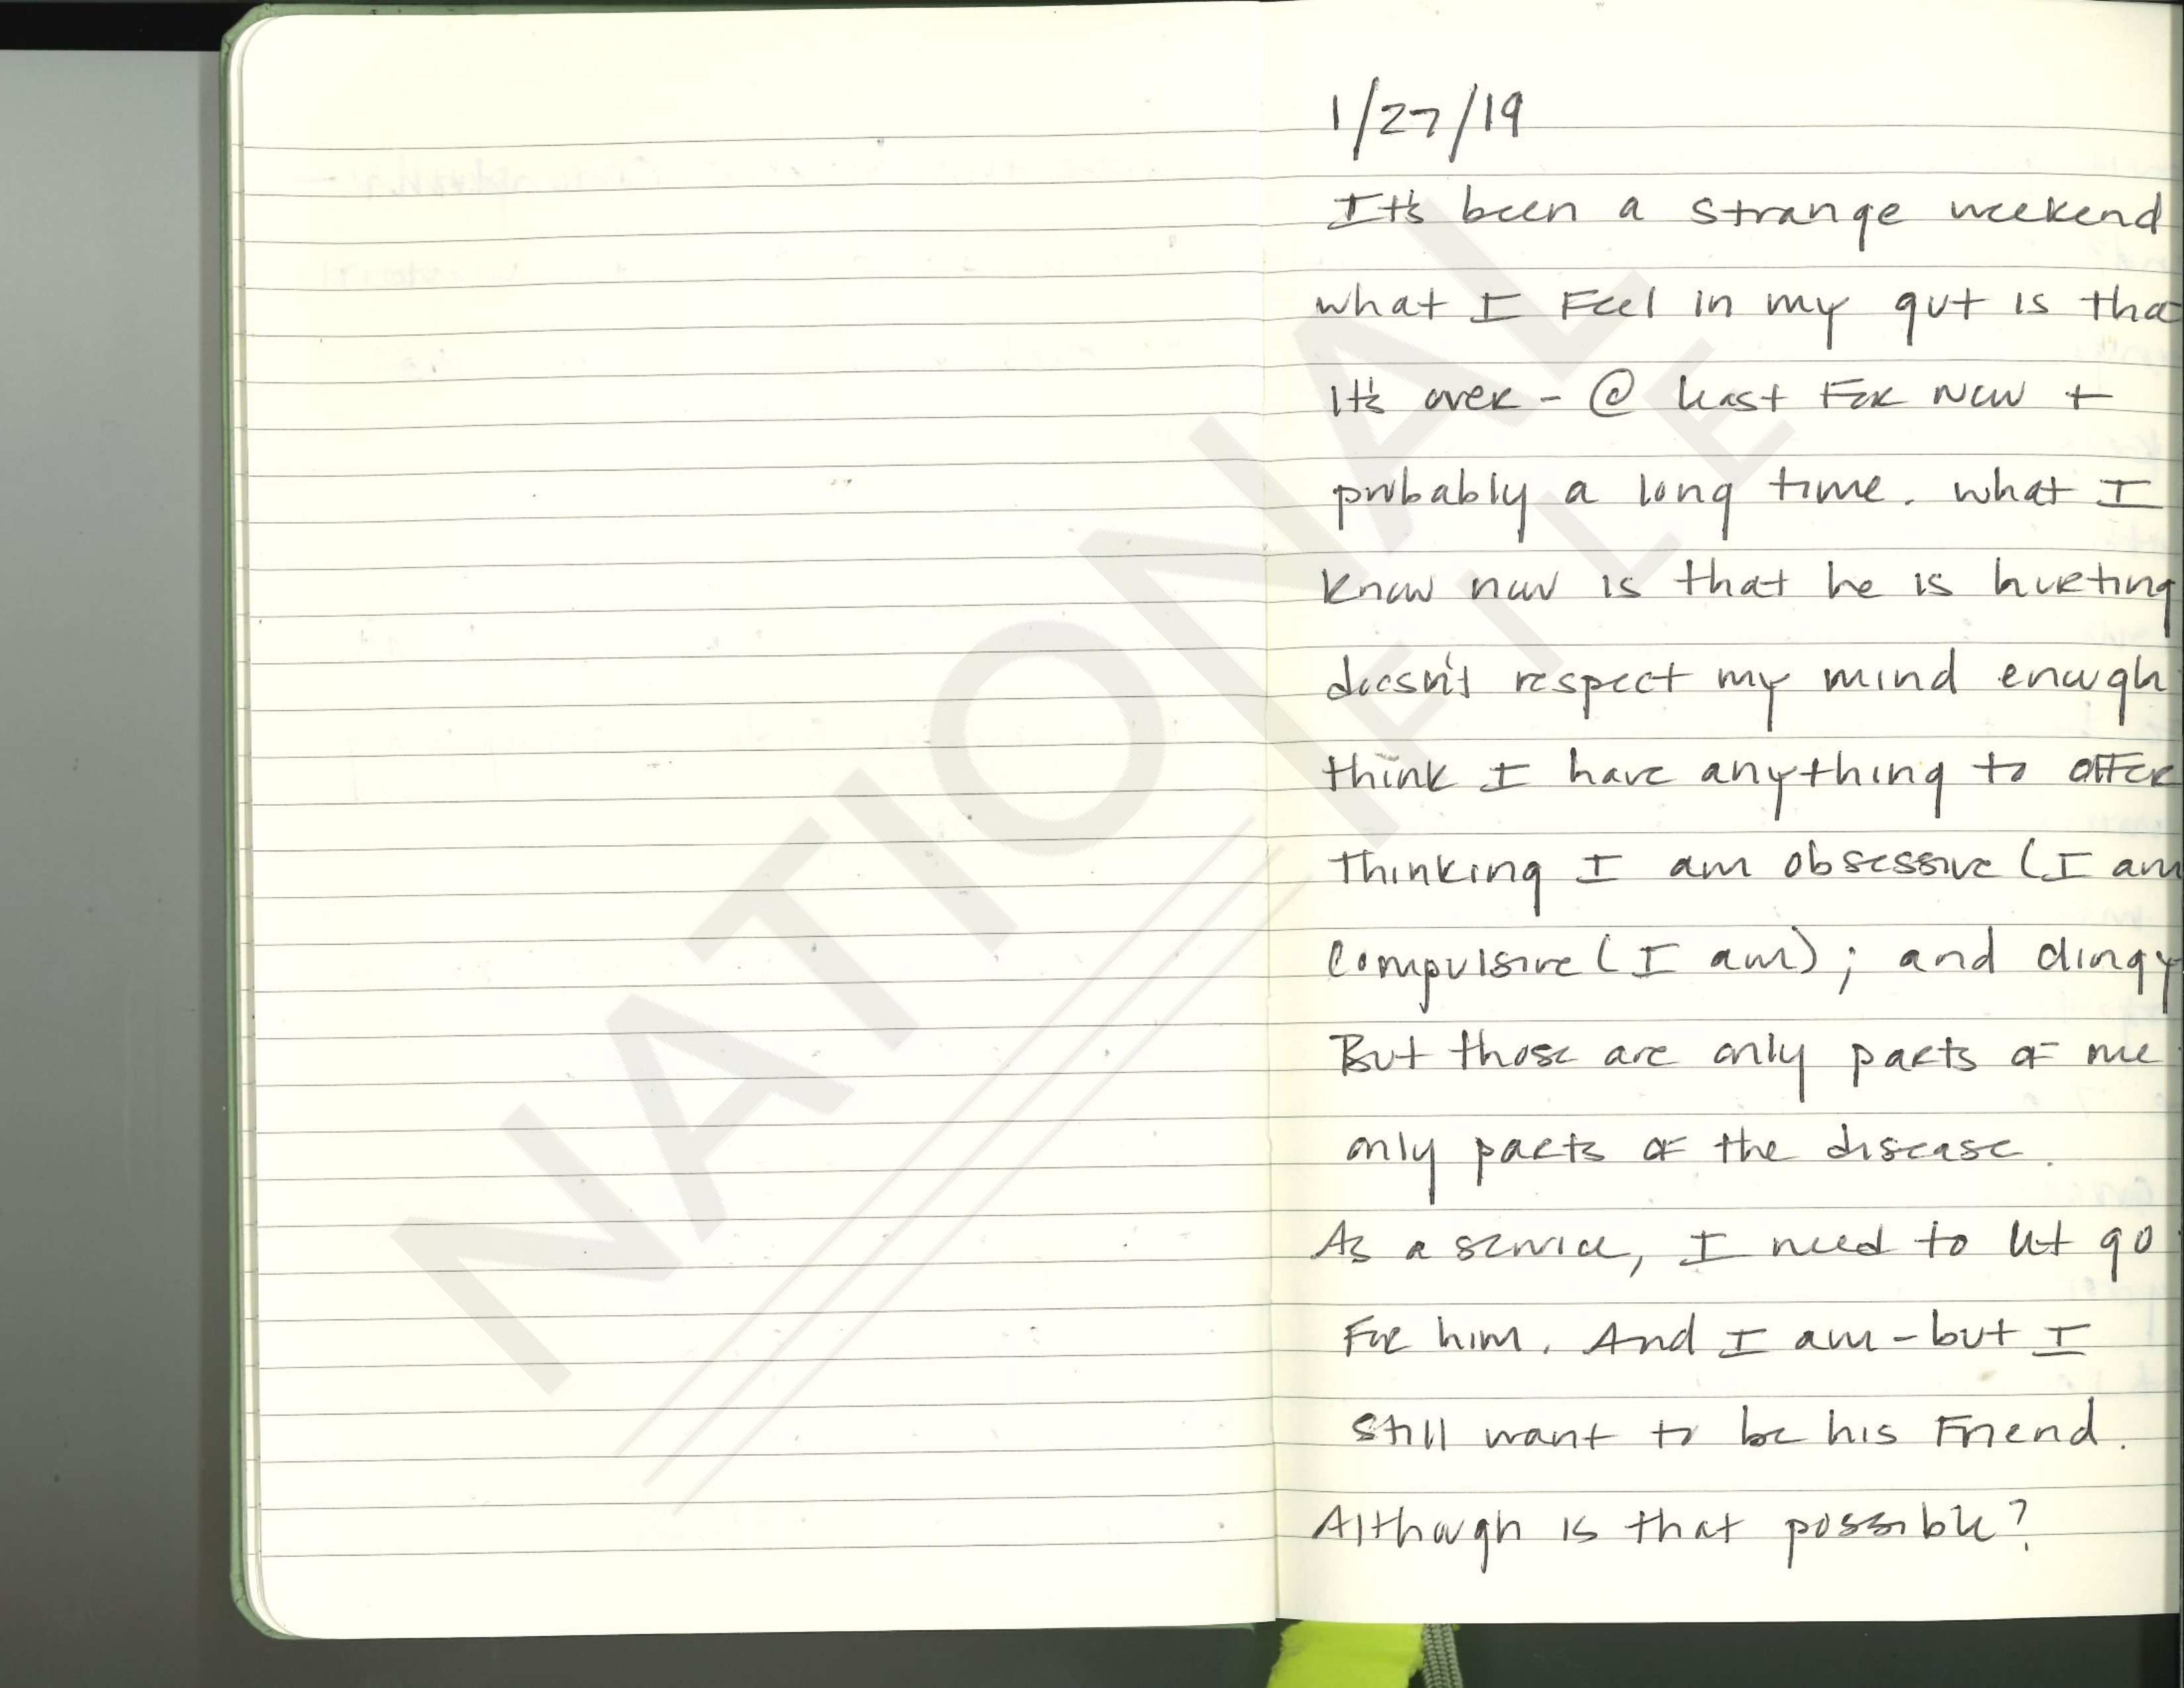 1/27/19
It's been a strange weekend
what I Feel in my gut is tha
It's over - @ least For now +
probably a long time. what I
know now is that he is hurting
doesn't respect my mind enough
think I have anything to offer
Thinking I am obsessive (I am
Compulsive (I am); and clingy
But those are only parts of me
only parts of the disease.
As a service, I need to let go
For him. And I am - but I
still want to be his Friend.
Although is that possible?
NATIONAL
FILE